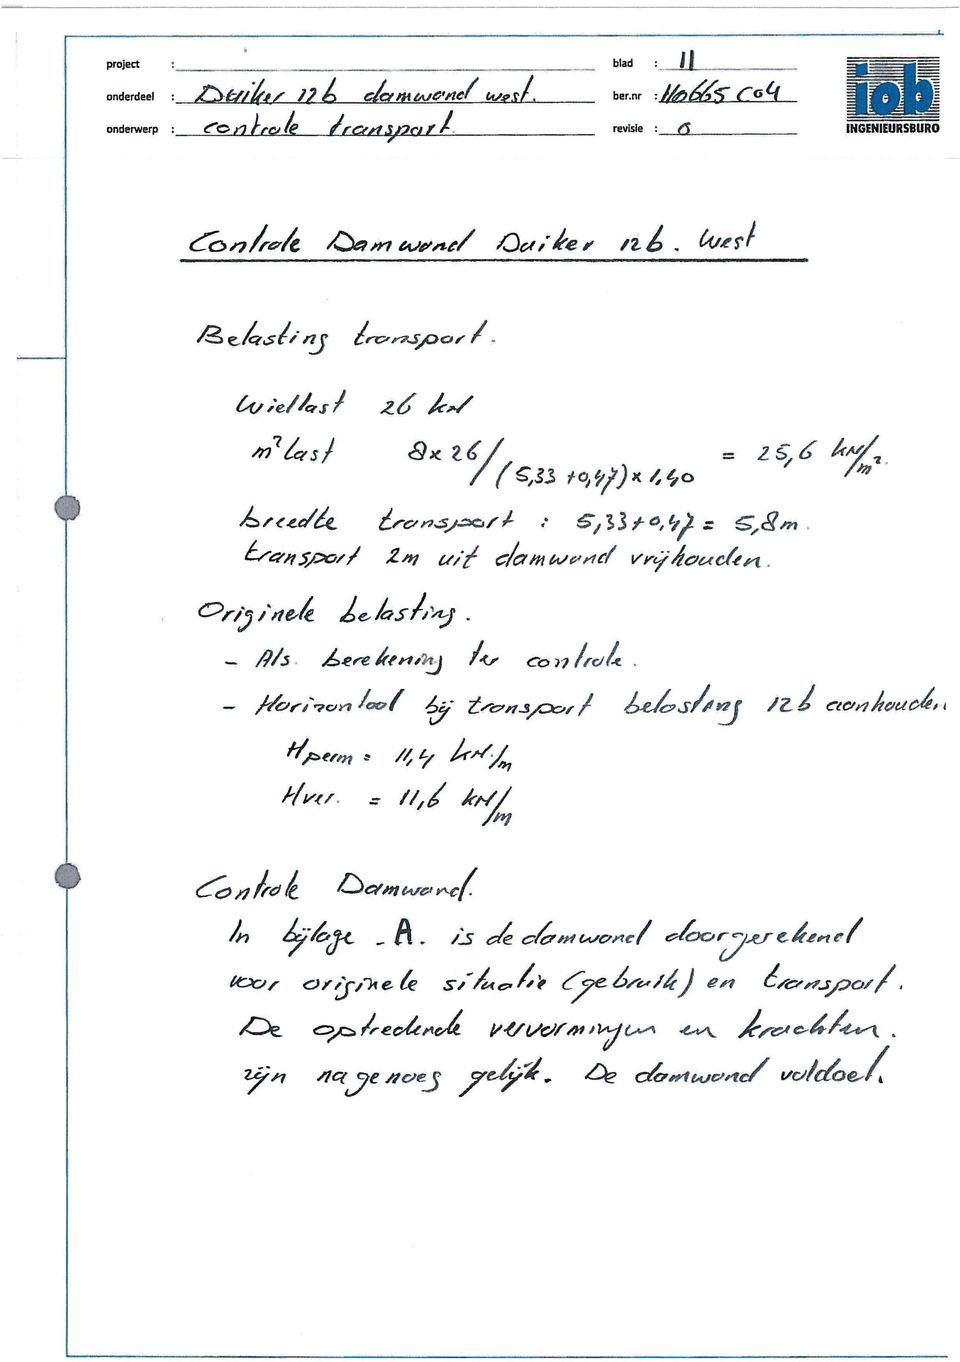 project :
blad : 11
onderdeel : Duiker 12b damwand west.
ber.nr : 110665 C04
onderwerp : controle transport
revisie : 0
iob
INGENIEURSBURO
Controle Damwand Duiker 12b. West
Belasting transport.
Wiellast 26 kN
m² last 8x26/(5,33+0,47)x1,40 = 25,6 kN/m².
breedte transport : 5,33+0,47 = 5,8m.
transport 2m uit damwand vrijhouden.
Originele belasting.
- Als berekening ter controle.
- Horizontaal bij transport belasting 12b aanhouden
Hperm = 11,4 kN/m
Hver. = 11,6 kN/m
Controle Damwand.
In bijlage A. is de damwand doorgerekend
voor originele situatie (gebruik) en transport.
De optredende vervormingen en krachten.
zijn nagenoeg gelijk. De damwand voldoet.